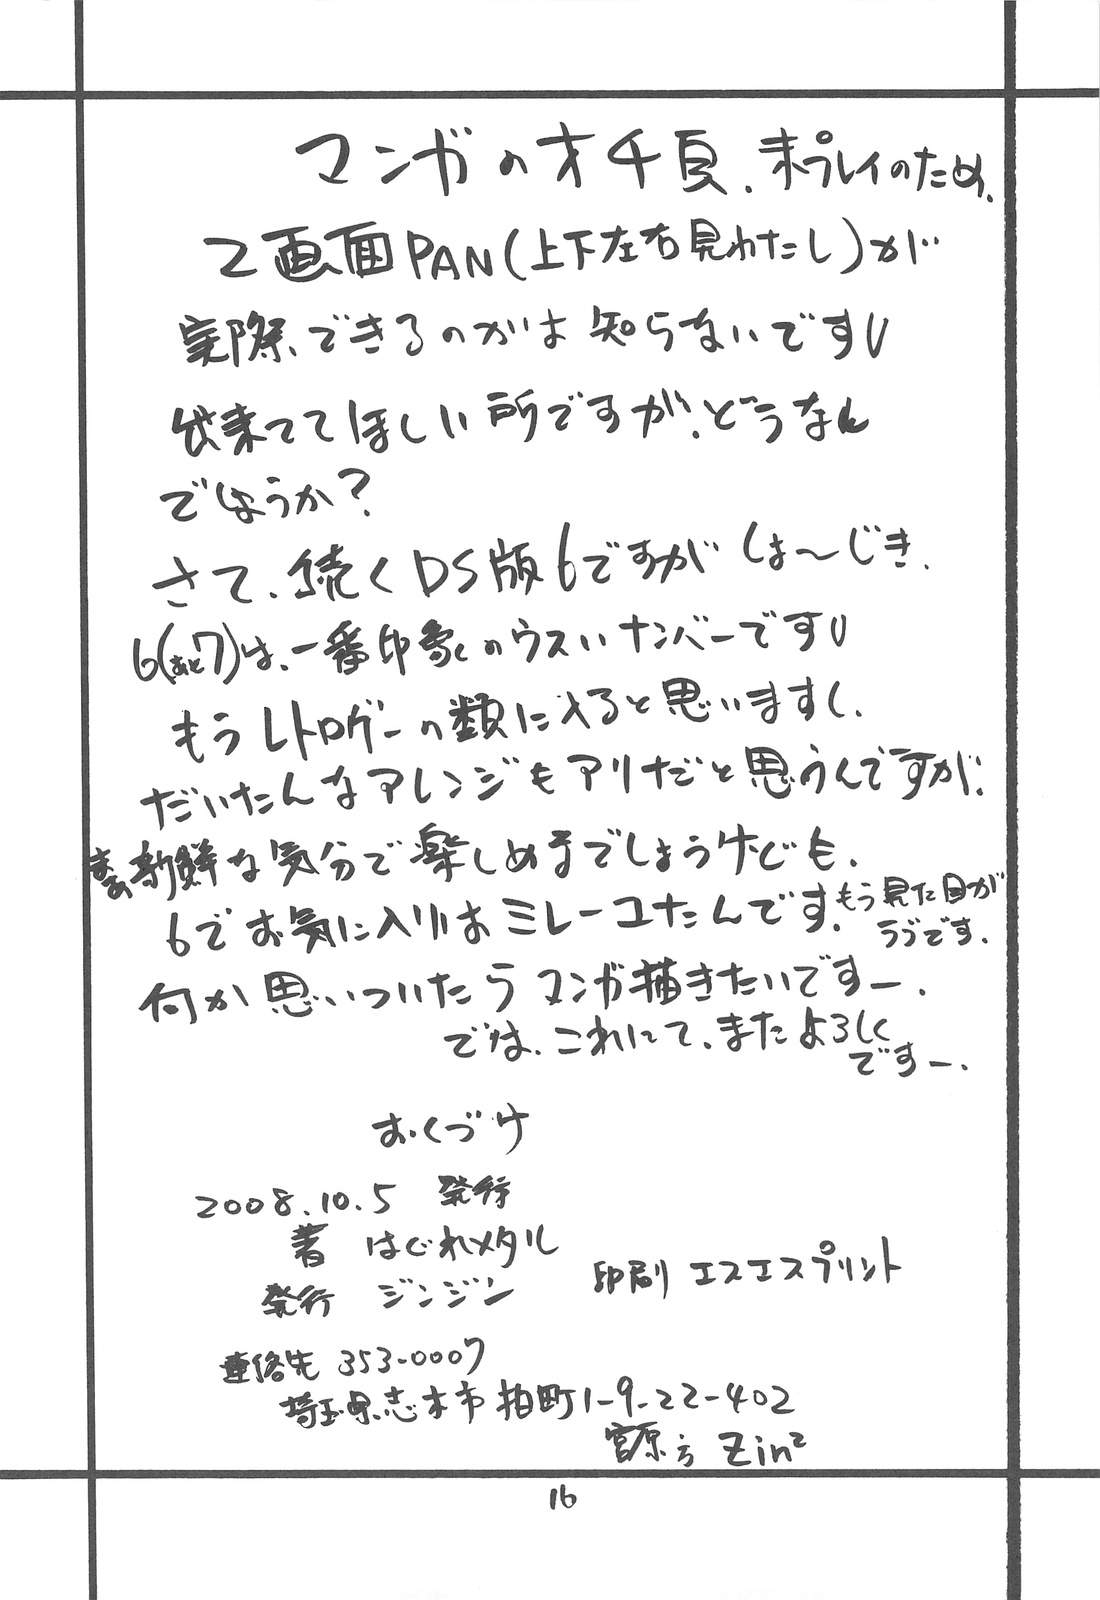 マンガのオチ頁、未プレイのため、
2画面PAN(上下左右見わたし)が
実際、できるのかは知らないですU
出来ててほしい所ですが、どうなん
でしょうか?
さて、続くDS版6ですがしょ〜じき、
6(あと7)は、一番印象のウスいナンバーですU
もうレトロゲーの類に入ると思いますし、
だいたんなアレンジもアリだと思うんですが、
まあ新鮮な気分で楽しめるでしょうけども。
6でお気に入りはミレーユたんです。もう見た目が
ラブです。
何か思いついたらマンガ描きたいですー。
では、これにて、またよろしく
ですー。
おくづけ
2008.10.5 発行
著 はぐれメタル
発行 ジンジン
印刷 エスエスプリント
連絡先 353-0007
埼玉県志木市柏町1-9-22-402
宮原方 Zin²
16